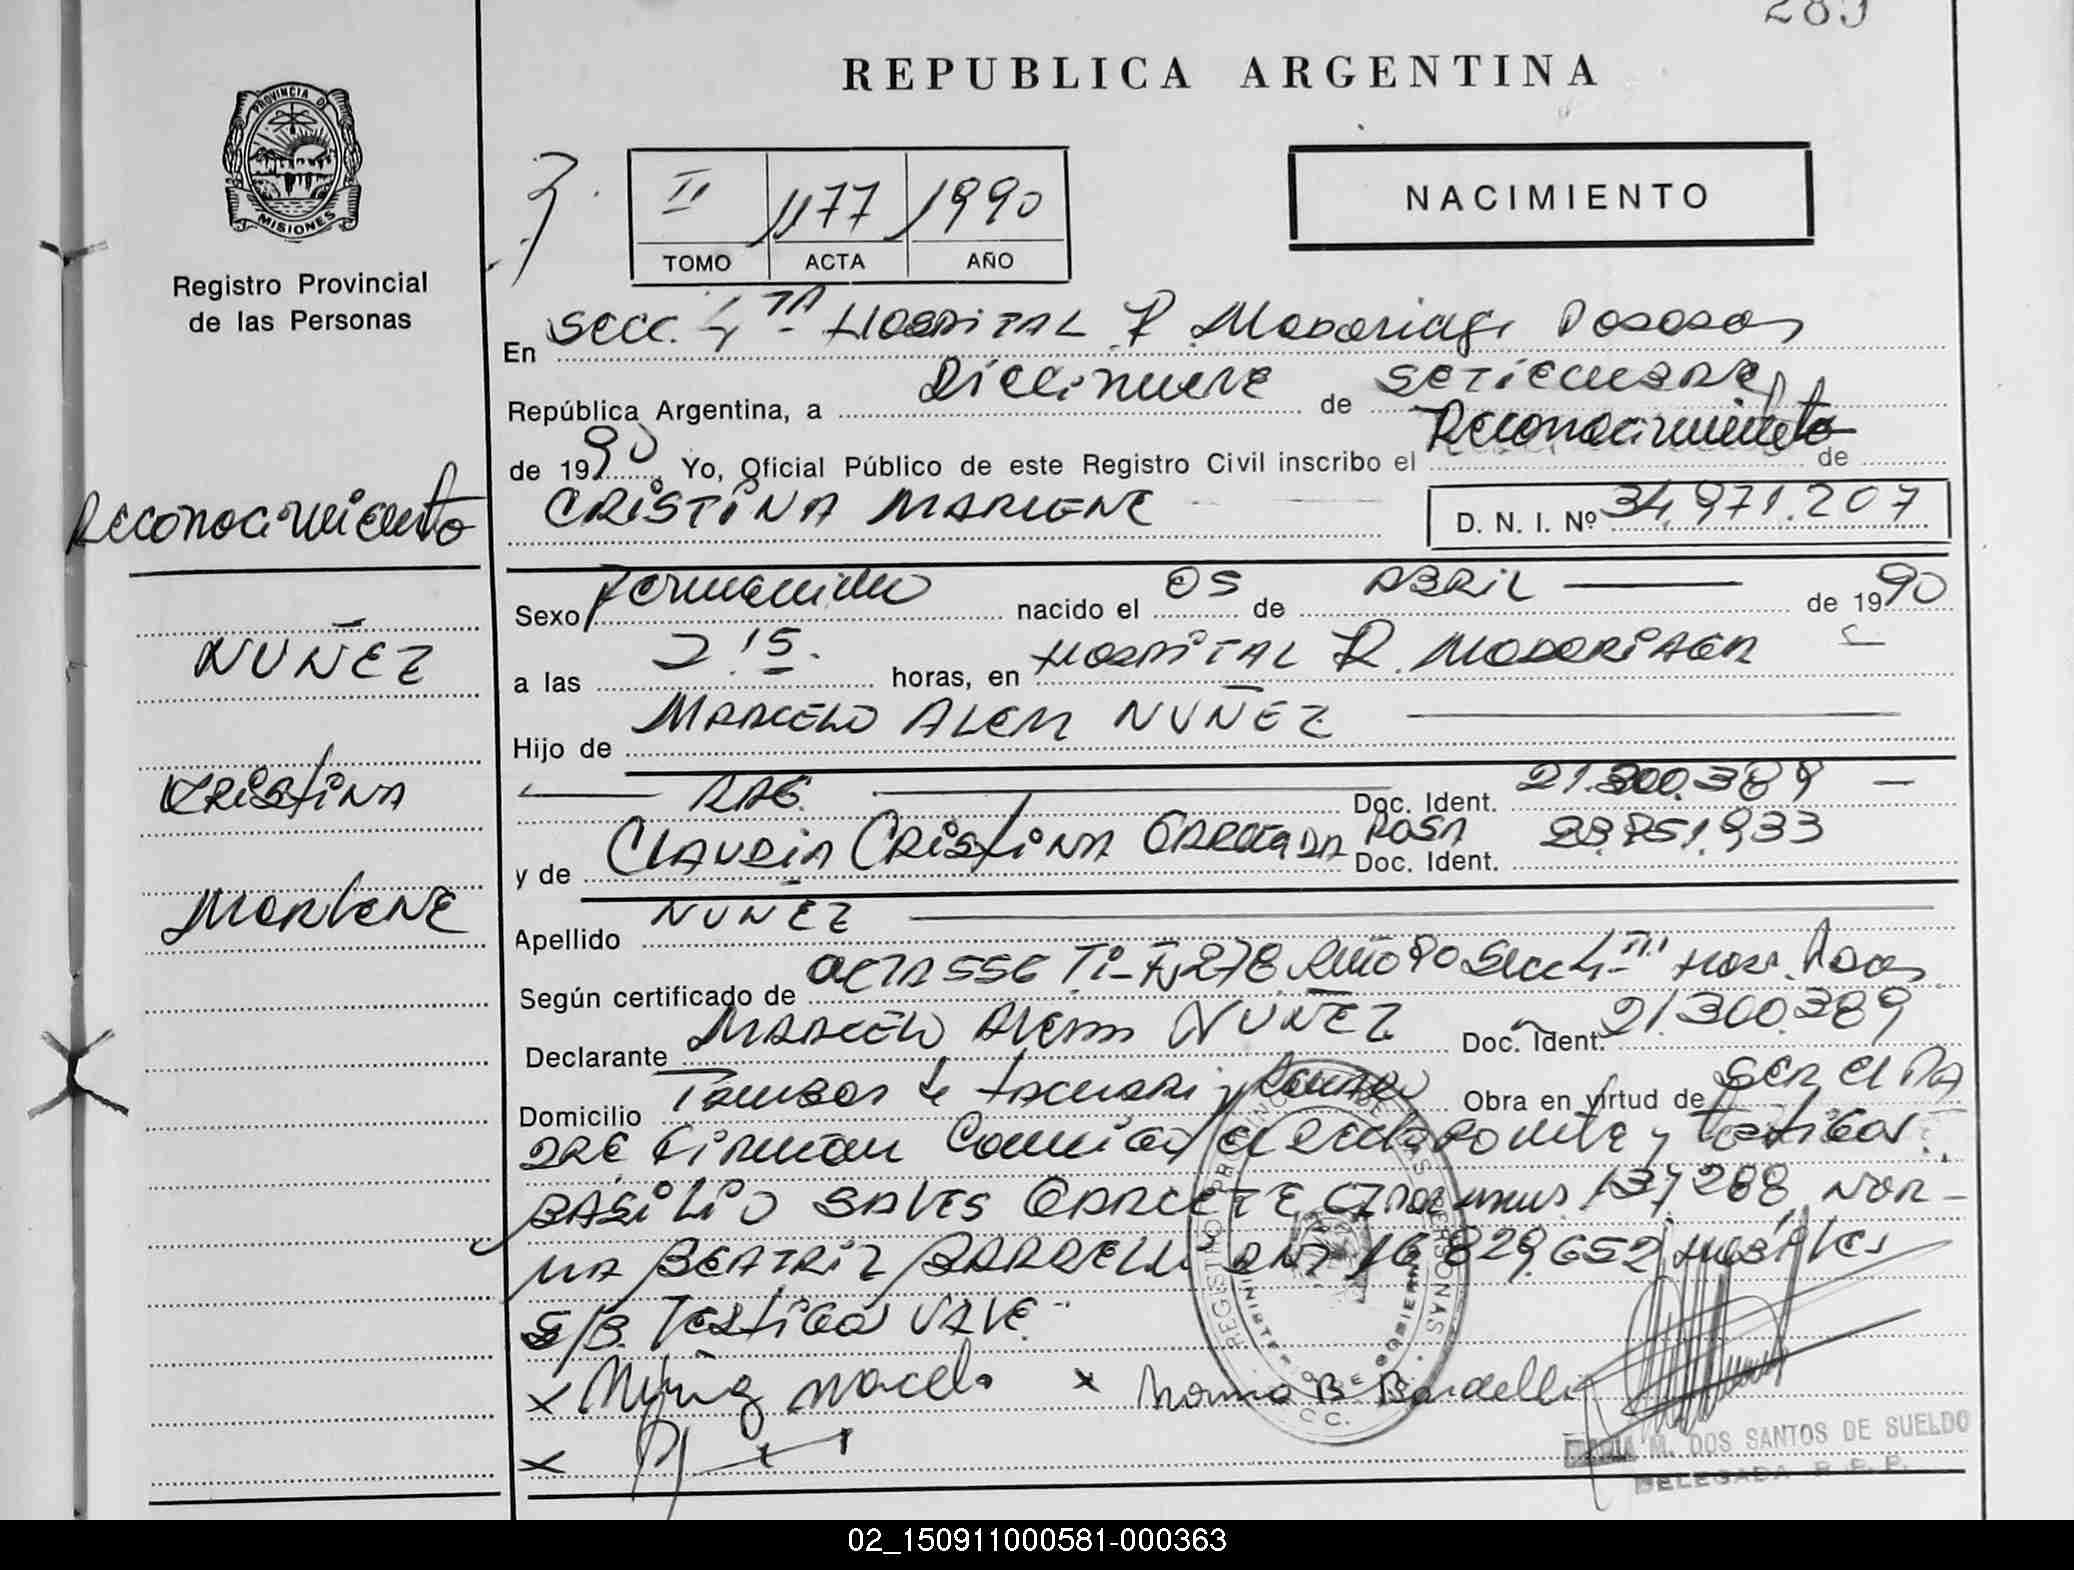 289
REPUBLICA ARGENTINA
PROVINCIA D
MISIONES
Registro Provincial
de las Personas
II 1177 1990
TOMO ACTA AÑO
NACIMIENTO
En Secc. 4ta Hospital R. Madariaga Posadas
República Argentina, a Diecinueve de Setiembre
de 1990, Yo, Oficial Público de este Registro Civil inscribo el Reconocimiento de
CRISTINA MARLENE D. N. I. Nº 34.971.207
Reconocimiento
NUÑEZ
CRISTINA
MARLENE
Sexo Femenino nacido el 05 de ABRIL de 1990
a las 2.15. horas, en Hospital R. MADARIAGA
Hijo de MARCELO ALEM NUÑEZ
ARG. Doc. Ident. 21.300.389
y de CLAUDIA CRISTINA ROSA Doc. Ident.
Apellido NUÑEZ
Según certificado de ACTA 556 Ti-Fº 278 Año 90 Secc 4ta
Declarante MARCELO ALEM NUÑEZ Doc. Ident. 21.300.389
Domicilio Tambor de Tacuari y Obra en virtud de SER el PA
DRE Firman Conmigo el Declarante y testigos
BASILIO GARCETE 137288 NOR-
MA BEATRIZ BARDELLI DNI 16.829.652
S/B. Testigos VALE
x Nuñez Marcelo x Norma B. Bardelli
x
REGISTRO PROVINCIAL DE LAS PERSONAS
MINISTERIO DE GOBIERNO
C C.
M. DOS SANTOS DE SUELDO
DELEGADA R. P. P.
02_150911000581-000363